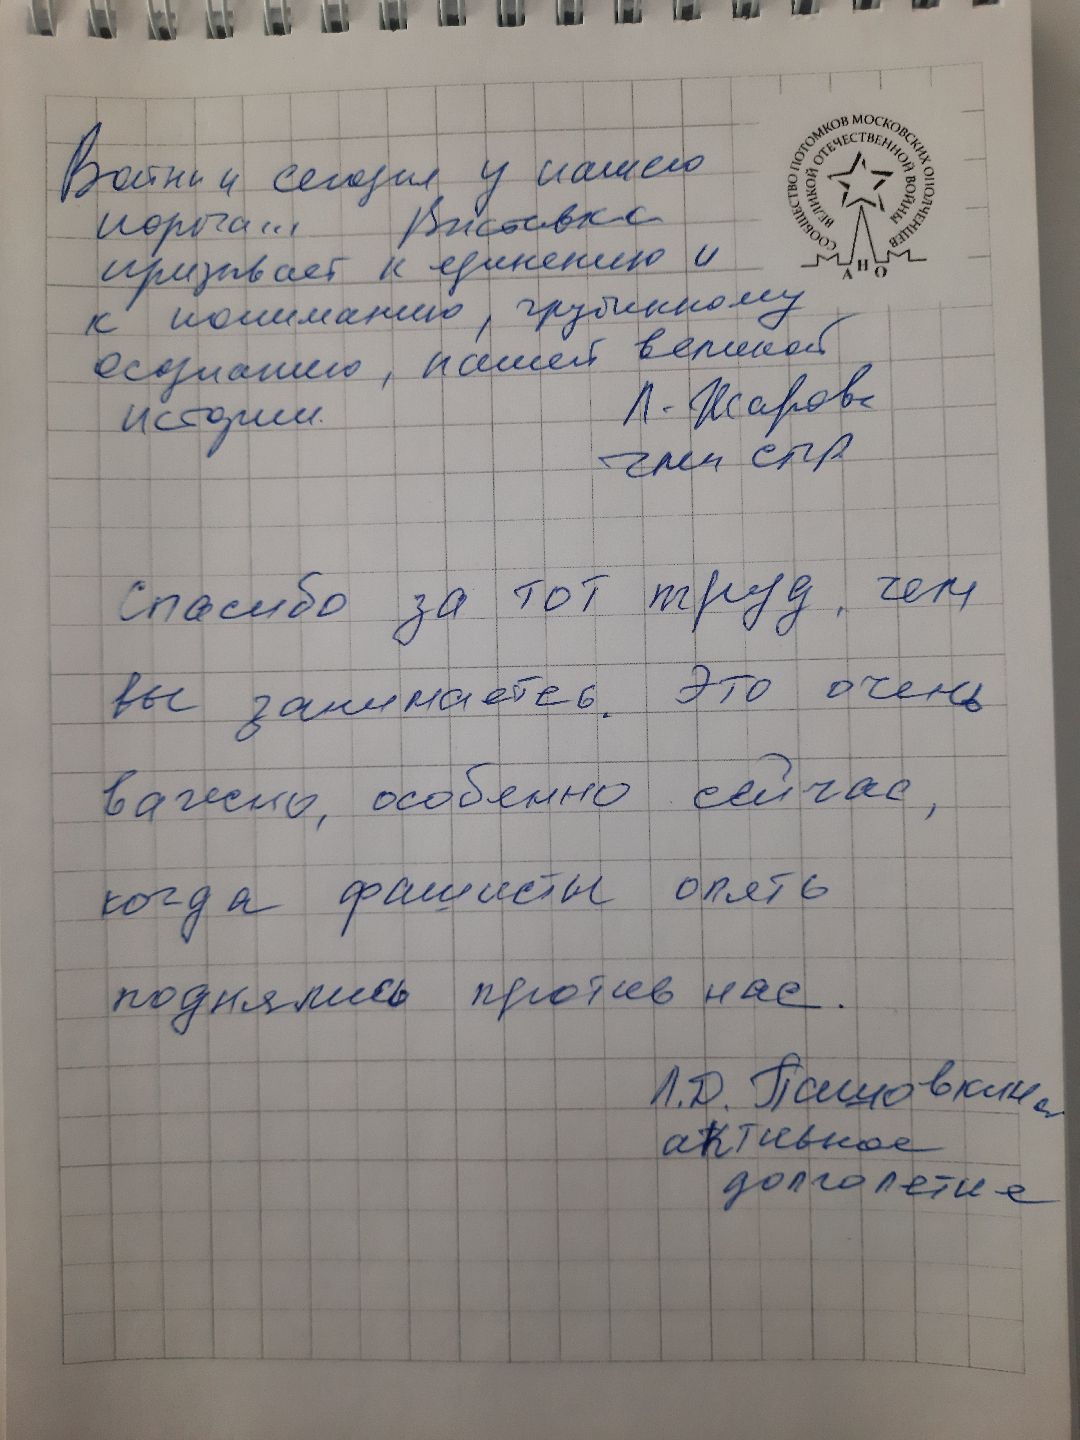 Войны и сегодня у нашего
порога... Выставка
призывает к единению и
к пониманию, глубинному
осознанию, нашей великой
истории.
Л. Жарова
член СПР
СООБЩЕСТВО ПОТОМКОВ МОСКОВСКИХ ОПОЛЧЕНЦЕВ
ВЕЛИКОЙ ОТЕЧЕСТВЕННОЙ ВОЙНЫ
АНО
Спасибо за тот труд, чем
вы занимаетесь. Это очень
важно, особенно сейчас,
когда фашисты опять
поднялись против нас.
Л.Д. Пашовкина
активное
долголетие